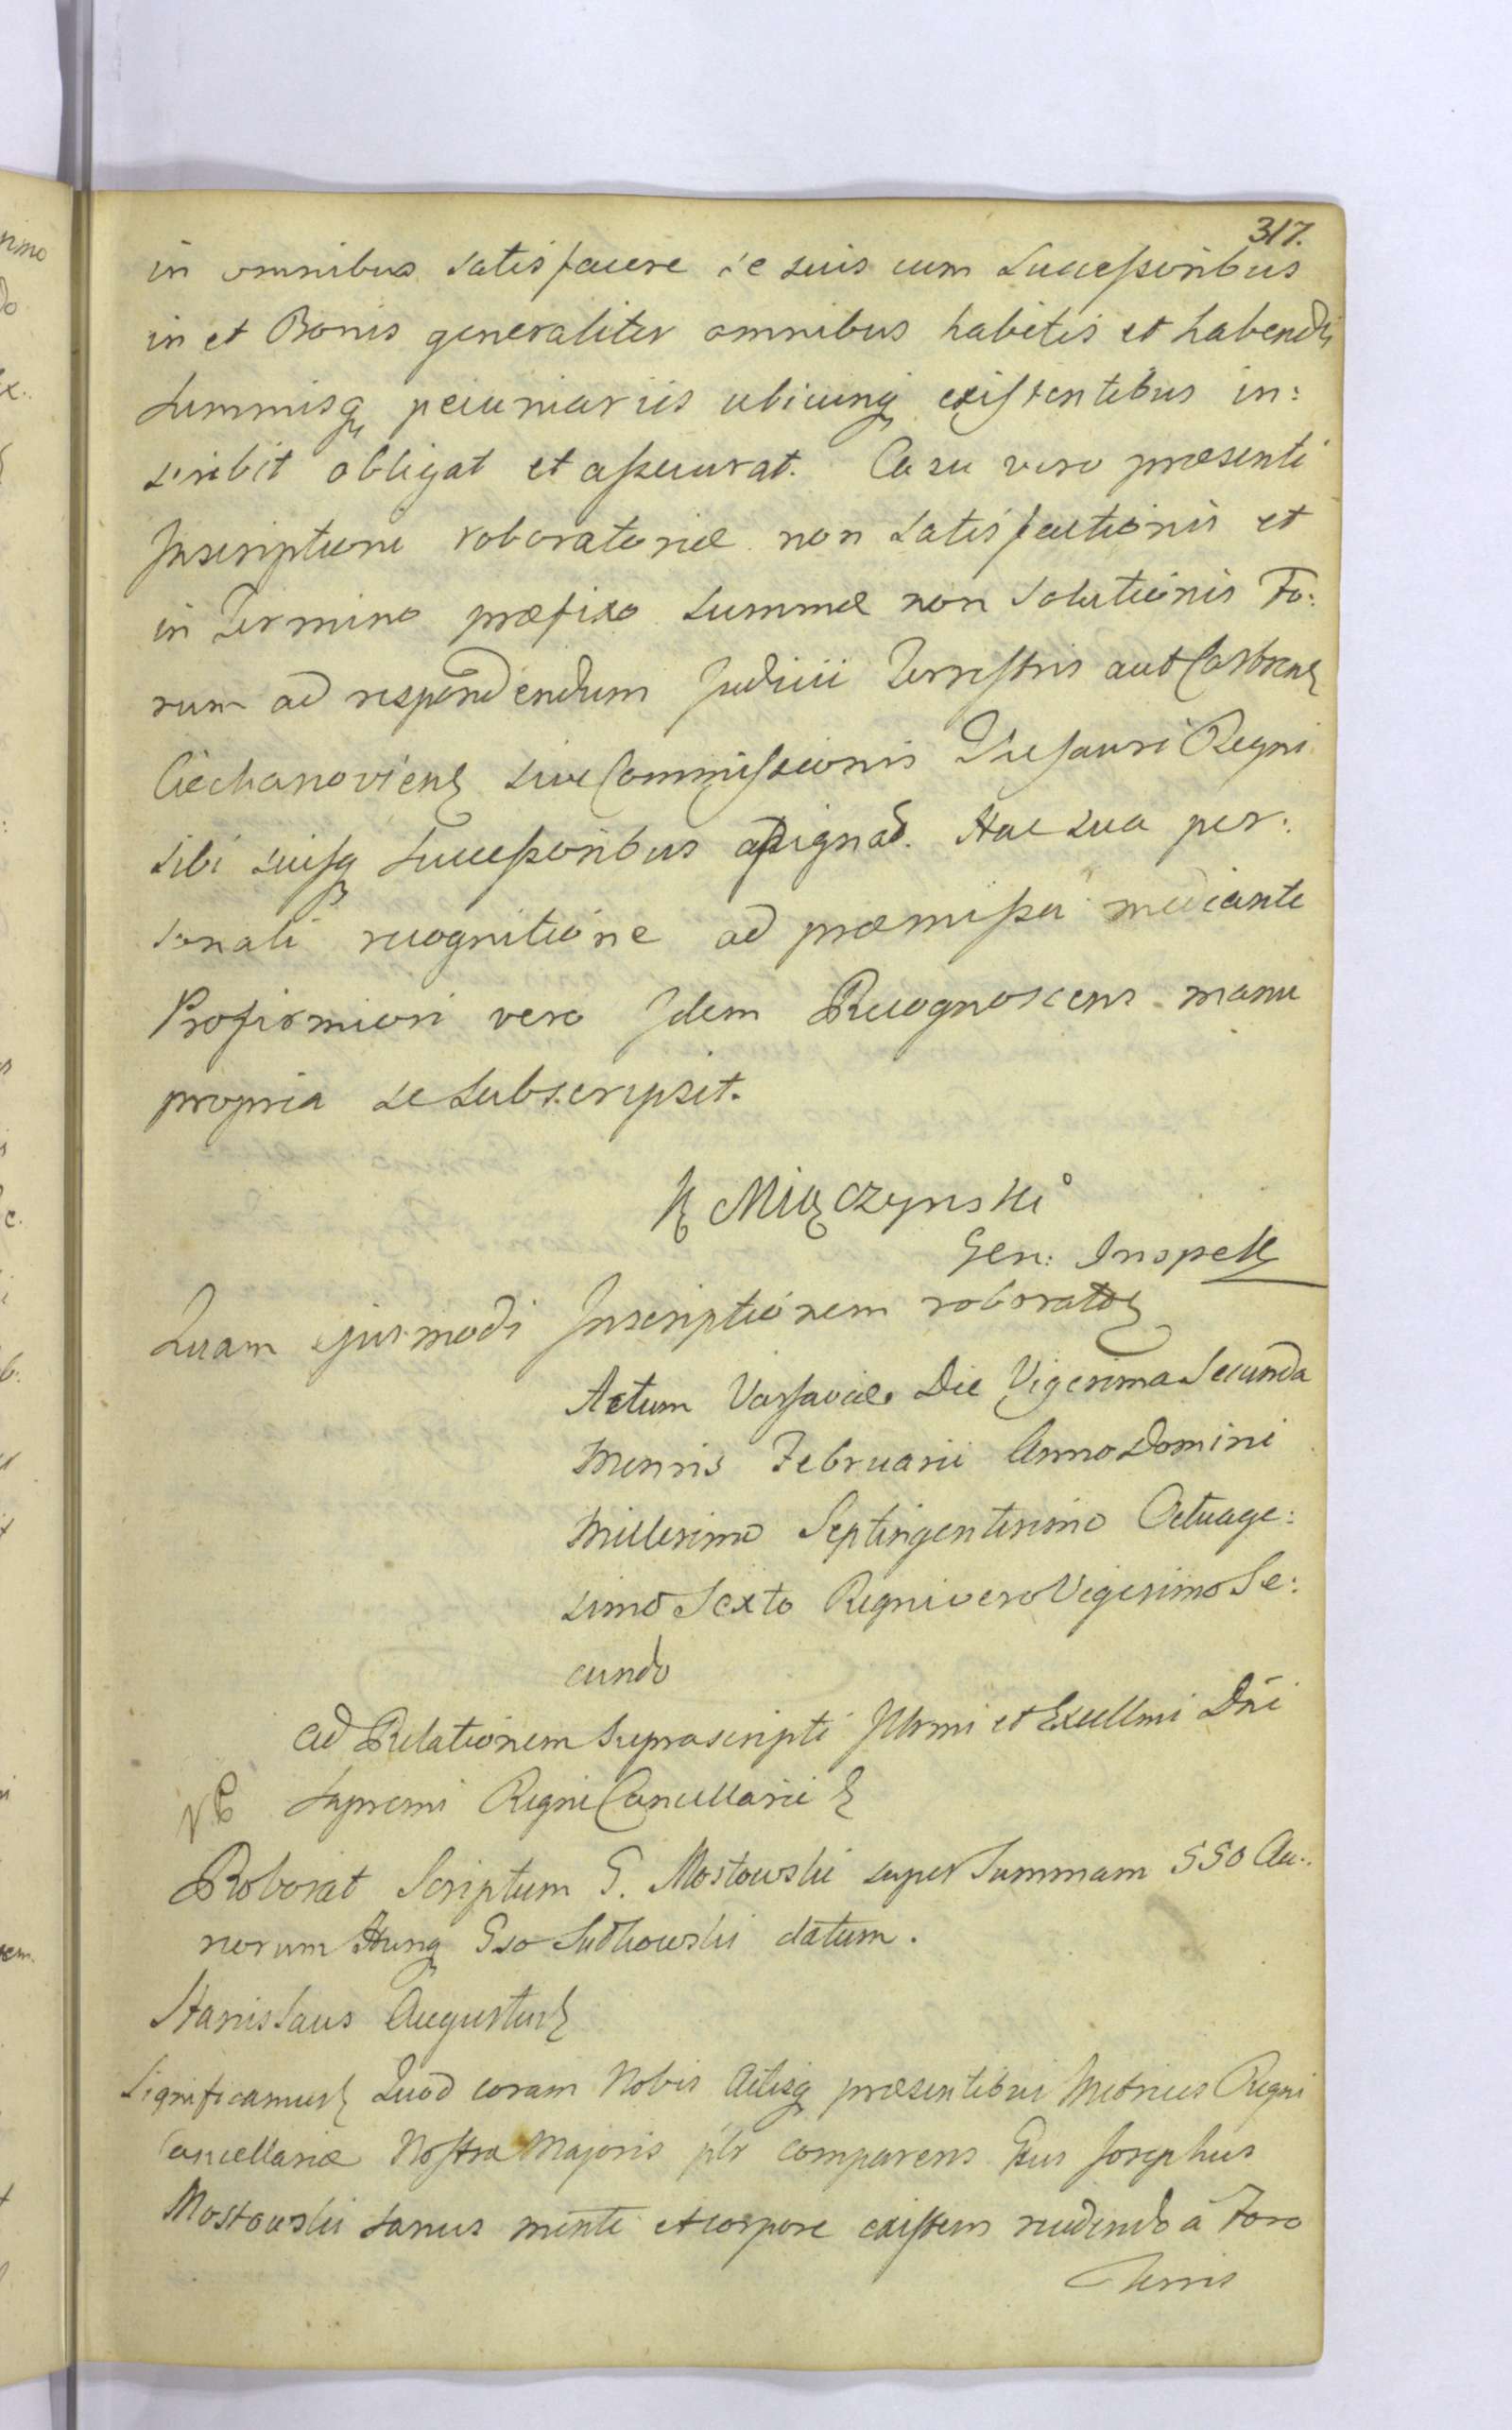 317.
in omnibus satisfacere se suis cum Successoribus
in et Bonis generaliter omnibus habitis et habendis
Summisq pecuniariis ubicunq existentibus in:
scribit obligat et assecurat. Casu vero præsenti
Inscriptioni roboratoriæ non Satisfactionis et
in Termino præfixo Summæ non Solutionis Fo:
rum ad respondendum Judicii Terrestris aut Castren
Ciechanovien sive Commissionis Thesauri Regni
sibi suisq Successoribus assignat. Hac sua per:
sonali recognitione ad præmissa mediante
Pro firmiori vero Idem Recognoscens manu
propria se subscripsit.
Miączynski
Gen: Inspek
Quam ejusmodi Inscriptionem roborato
Actum Varsaviæ Die Vigesima Secunda
Mensis Februarii Anno Domini
Millesimo Septingentesimo Octuage:
simo Sexto Regni vero Vigesimo Se:
cundo
Ad Relationem Suprascripti Illrmi et Excellmi Dni
Supremi Regni Cancellarii
Roborat Scriptum G. Mostowski super Summam 550 Au:
reorum Hung Gso Sutkowski datum.
Stanislaus Augustus
Significamus Quod coram Nobis Actisq præsentibus Metrices Regni
Cancellariæ Nostra Majoris plr comparens Gsus Josephus
Mostowski sanus mente et corpore existens recedendo a Foro
Terris